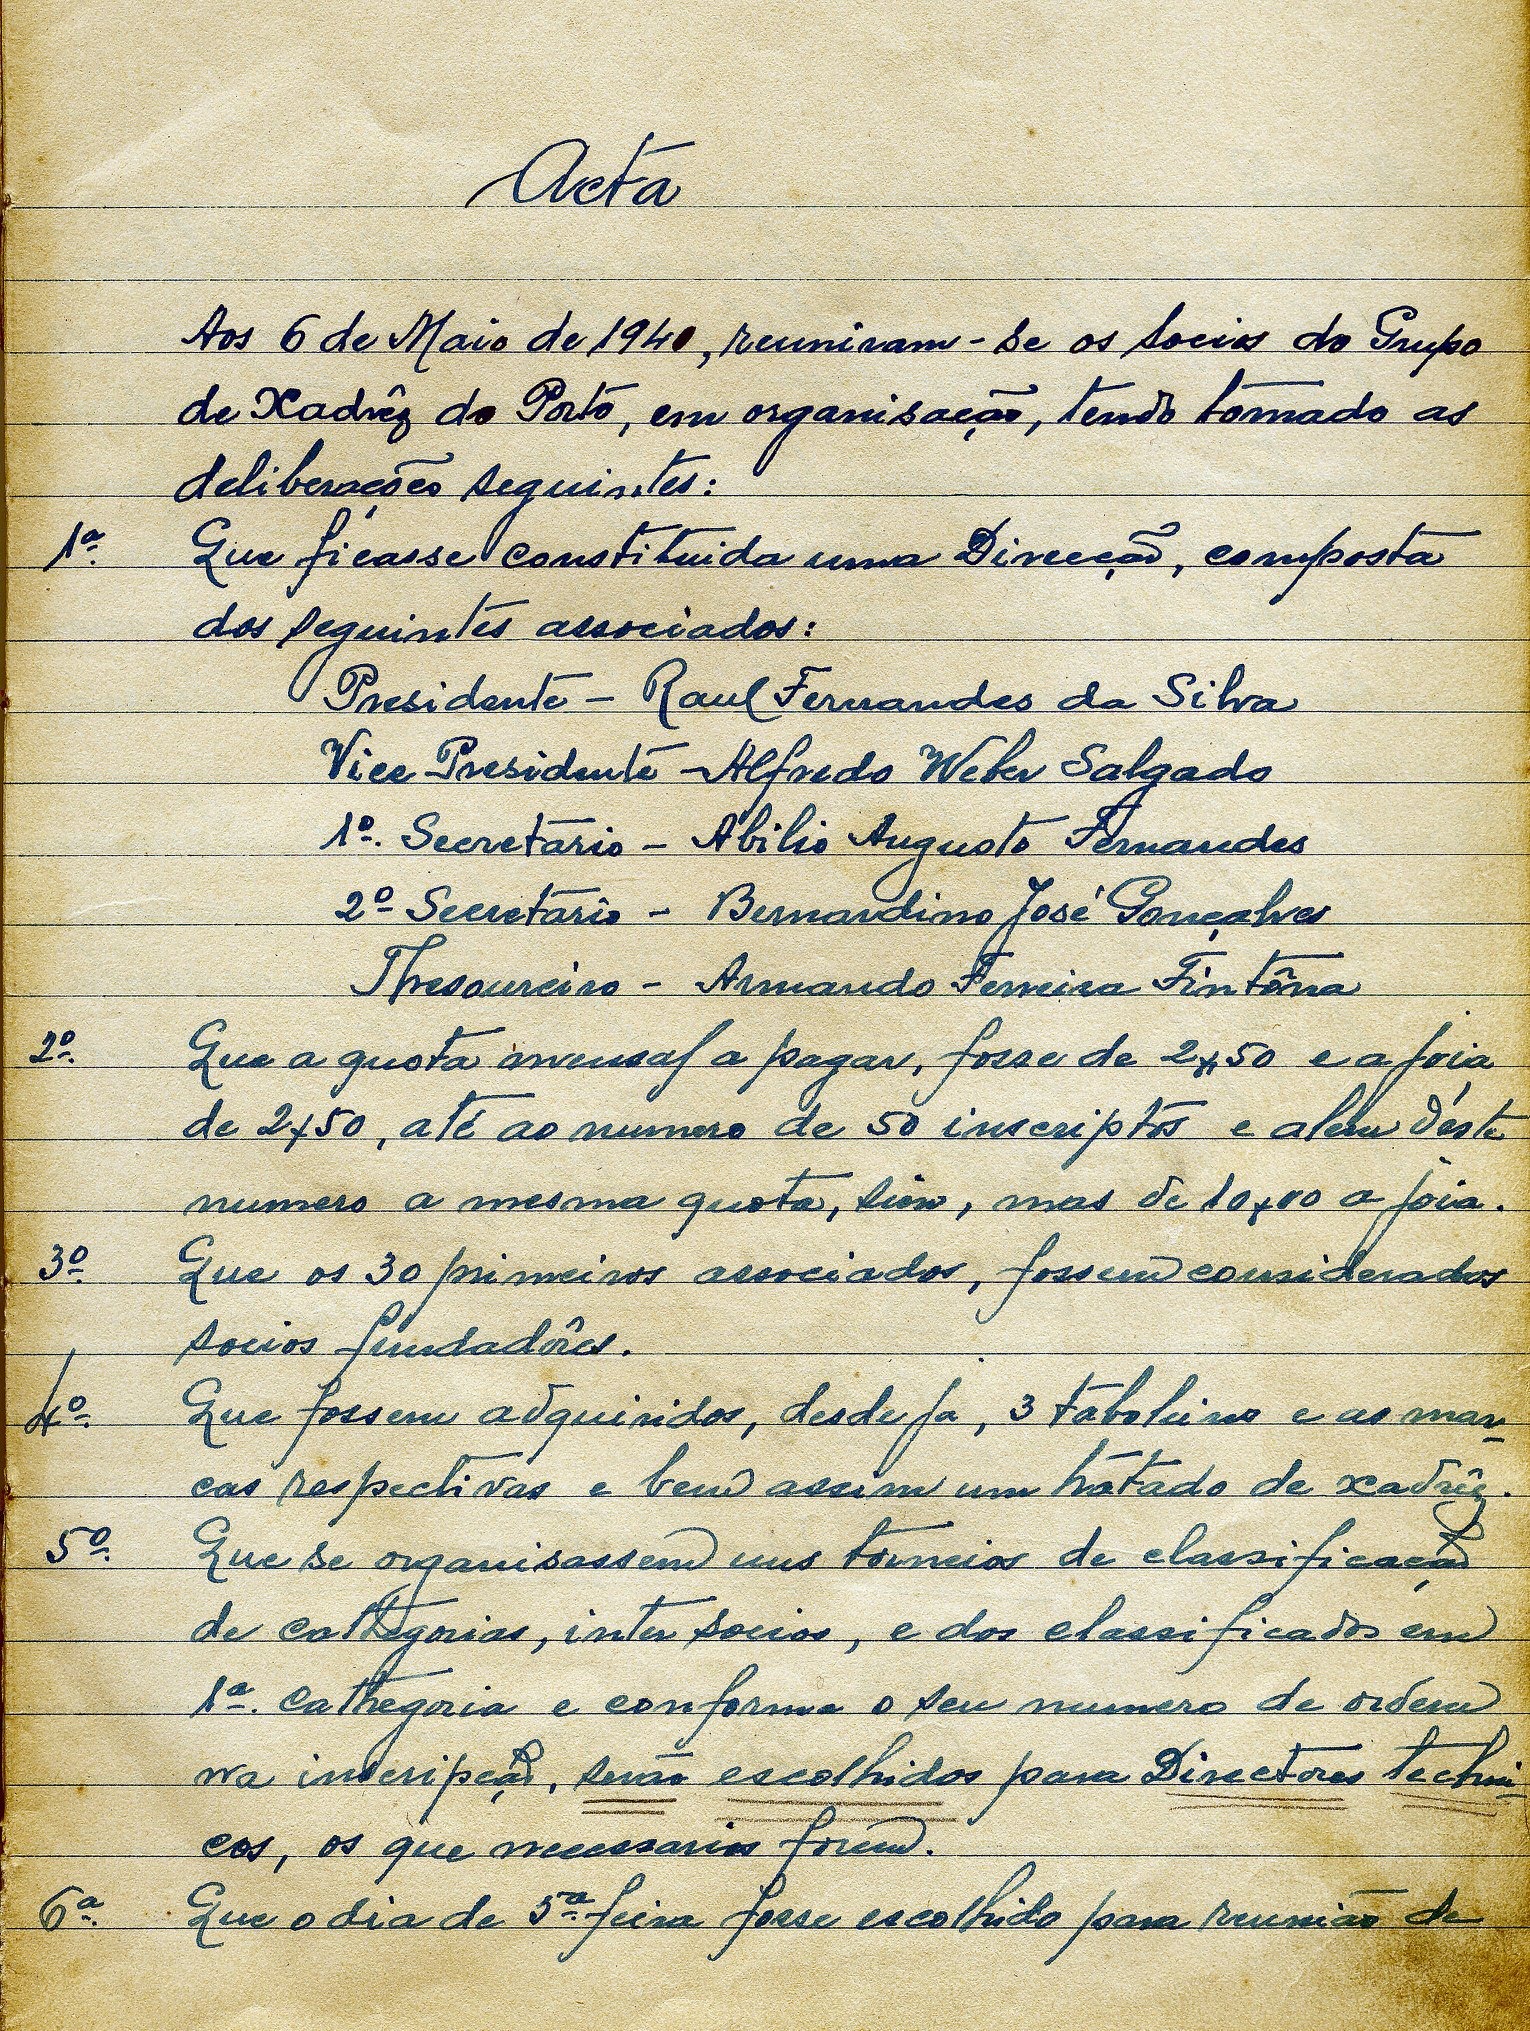 Acta
Aos 6 de Maio de 1940, reuniram-se os socios do Grupo
de Xadrêz do Porto, em organisação, tendo tomado as
deliberações seguintes:
1ª. Que ficasse constituida uma Direcção, composta
dos seguintes associados:
Presidente - Raul Fernandes da Silva
Vice Presidente - Alfredo Weber Salgado
1º. Secretario - Abilio Augusto Fernandes
2º Secretario - Bernardino José Gonçalves
Thesoureiro - Armando Ferreira Fintôna
2º. Que a quota mensal a pagar, fosse de 2$50 e a joia
de 2$50, até ao numero de 50 inscriptos e alem d'éste
numero a mesma quota, sim, mas de 10$00 a joia.
3º. Que os 30 primeiros associados, fossem considerados
socios fundadôres.
4º. Que fossem adquiridos, desde já, 3 taboleiros e as mar-
cas respectivas e bem assim um tratado de xadrêz.
5º. Que se organisassem uns torneios de classificação
de cathegorias, inter socios, e dos classificados em
1ª. cathegoria e conforme o seu numero de ordem
na inscripção, serão escolhidos para Directores techni-
cos, os que necessarios forem.
6ª. Que o dia de 5ª feira fosse escolhido para reunião de